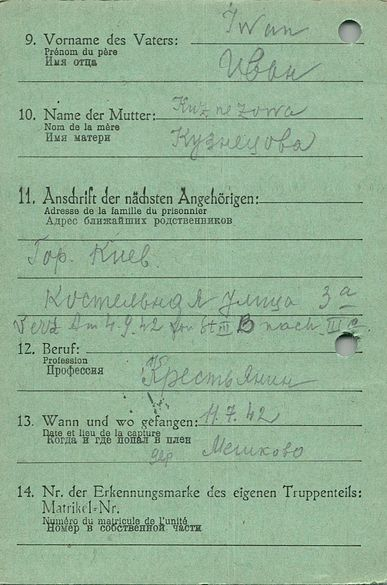 Iwan
9. Vorname des Vaters:
Prénom du père
Имя отца
Иван
10. Name der Mutter: Kuznezowa
Nom de la mère
Имя матери
Кузнецова
11. Anschrift der nächsten Angehörigen:
Adresse de la famille du prisonnier
Адрес ближайших родственников
Гор. Киев.
Костельная улица 3а
Vers. Am 4.9.42 von St III B nach III C
12. Beruf:
Profession
Профессия
Крестьянин
13. Wann und wo gefangen: 11.7.42
Date et lieu de la capture
Когда и где попал в плен
Мешково
14. Nr. der Erkennungsmarke des eigenen Truppenteils:
Matrikel-Nr.
Numéro du matricule de l'unité
Номер в собственной части